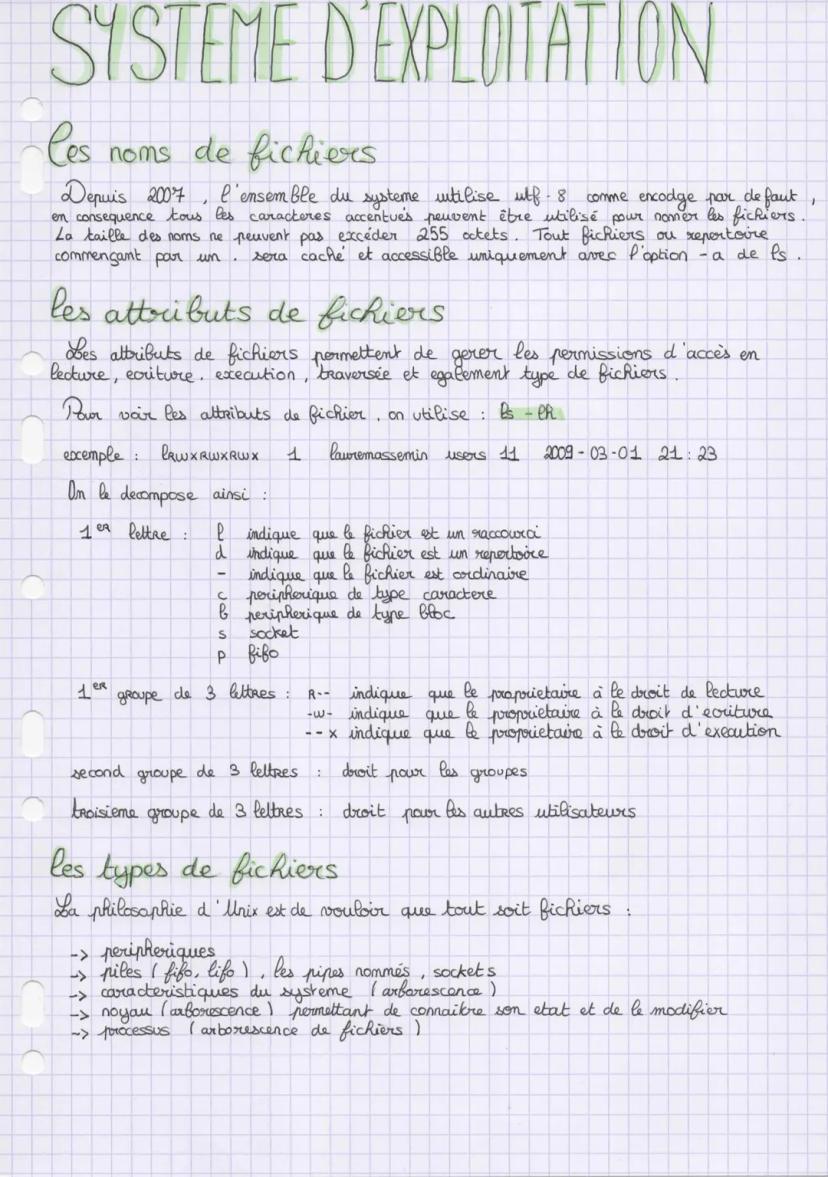 SYSTEME D'EXPLOITATION
les noms de fichiers
Depuis 2007, l'ensemble du systeme utilise utf-8 comme encodge par defaut,
en consequence tous les caracteres accentués peuvent être utilisé pour nomer les fichiers.
La taille des noms ne peuvent pas excéder 255 octets. Tout fichiers ou repertoire
commençant par un . sera caché et accessible uniquement avec l'option -a de ls.
les attributs de fichiers
Les attributs de fichiers permettent de gerer les permissions d'accès en
lecture, ecriture. execution, traversée et egalement type de fichiers.
Pour voir les attributs de fichier, on utilise : ls - lh
exemple : lRWXRWXRWX 1 lauremassemin users 11 2009-03-01 21:23
On le decompose ainsi :
1er lettre : l indique que le fichier est un raccourci
d indique que le fichier est un repertoire
- indique que le fichier est ordinaire
c peripherique de type caractere
b peripherique de type bloc
s socket
p fifo
1er groupe de 3 lettres : R-- indique que le proprietaire à le droit de lecture
-w- indique que le proprietaire à le droit d'ecriture
--x indique que le proprietaire à le droit d'execution
second groupe de 3 lettres : droit pour les groupes
troisieme groupe de 3 lettres : droit pour les autres utilisateurs
les types de fichiers
La philosophie d'Unix est de vouloir que tout soit fichiers :
-> peripheriques
-> piles (fifo, lifo), les pipes nommés, sockets
-> caracteristiques du systeme (arborescence)
-> noyau (arborescence) permettant de connaitre son etat et de le modifier
-> processus (arborescence de fichiers)